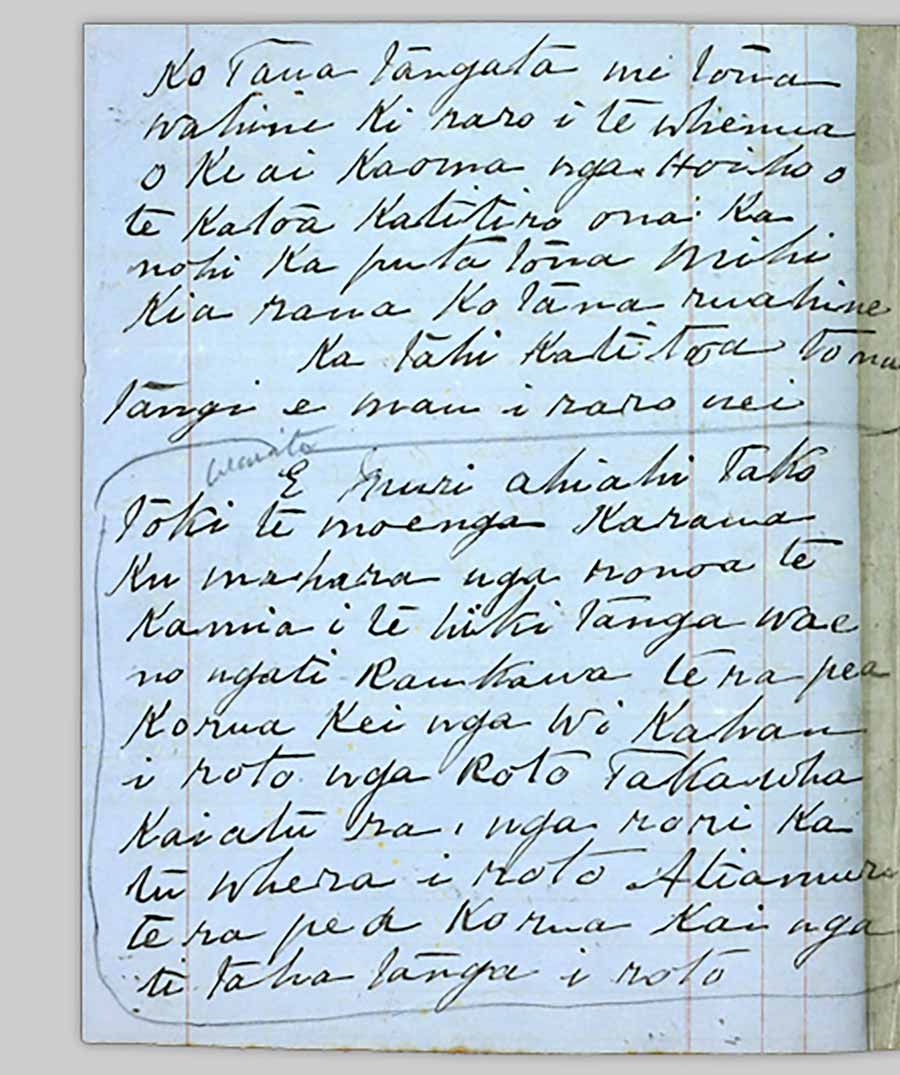 Ko Tana tangata me tona
wahine ki raro i te whenua
o Keai Kaoma nga Hoiho o
te Katoa Katitiro ona Ka
nohi Ka puta tona Mihi
Kia raua Ko tana ruahine
Ka tahi Kati toa tona
tangi e mau i raro nei
E Muri ahiahi Tako
toki te moenga Karaua
Ku mahara nga ronoa te
Kamia i te hiki tanga wae
no ngati Raukawa te ra pea
Korua Kei nga Wi Kahau
i roto nga Roto Takawha
Kaiatu ra, nga rori Ka
tu whera i roto Atiamuri
te ra pea Korua Kai nga
ti taha tanga i roto